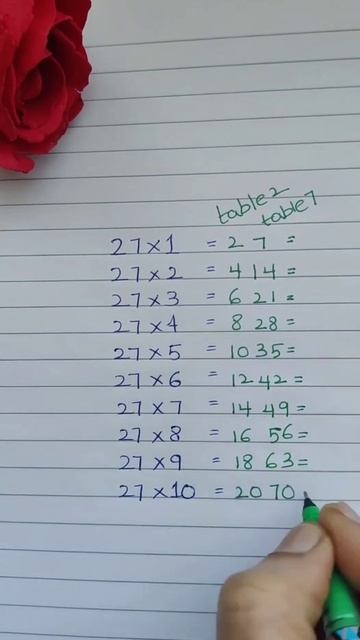 table2
table7
27×1 = 2 7 =
27×2 = 4 14 =
27×3 = 6 21 =
27×4 = 8 28 =
27×5 = 10 35 =
27×6 = 12 42 =
27×7 = 14 49 =
27×8 = 16 56 =
27×9 = 18 63 =
27×10 = 20 70